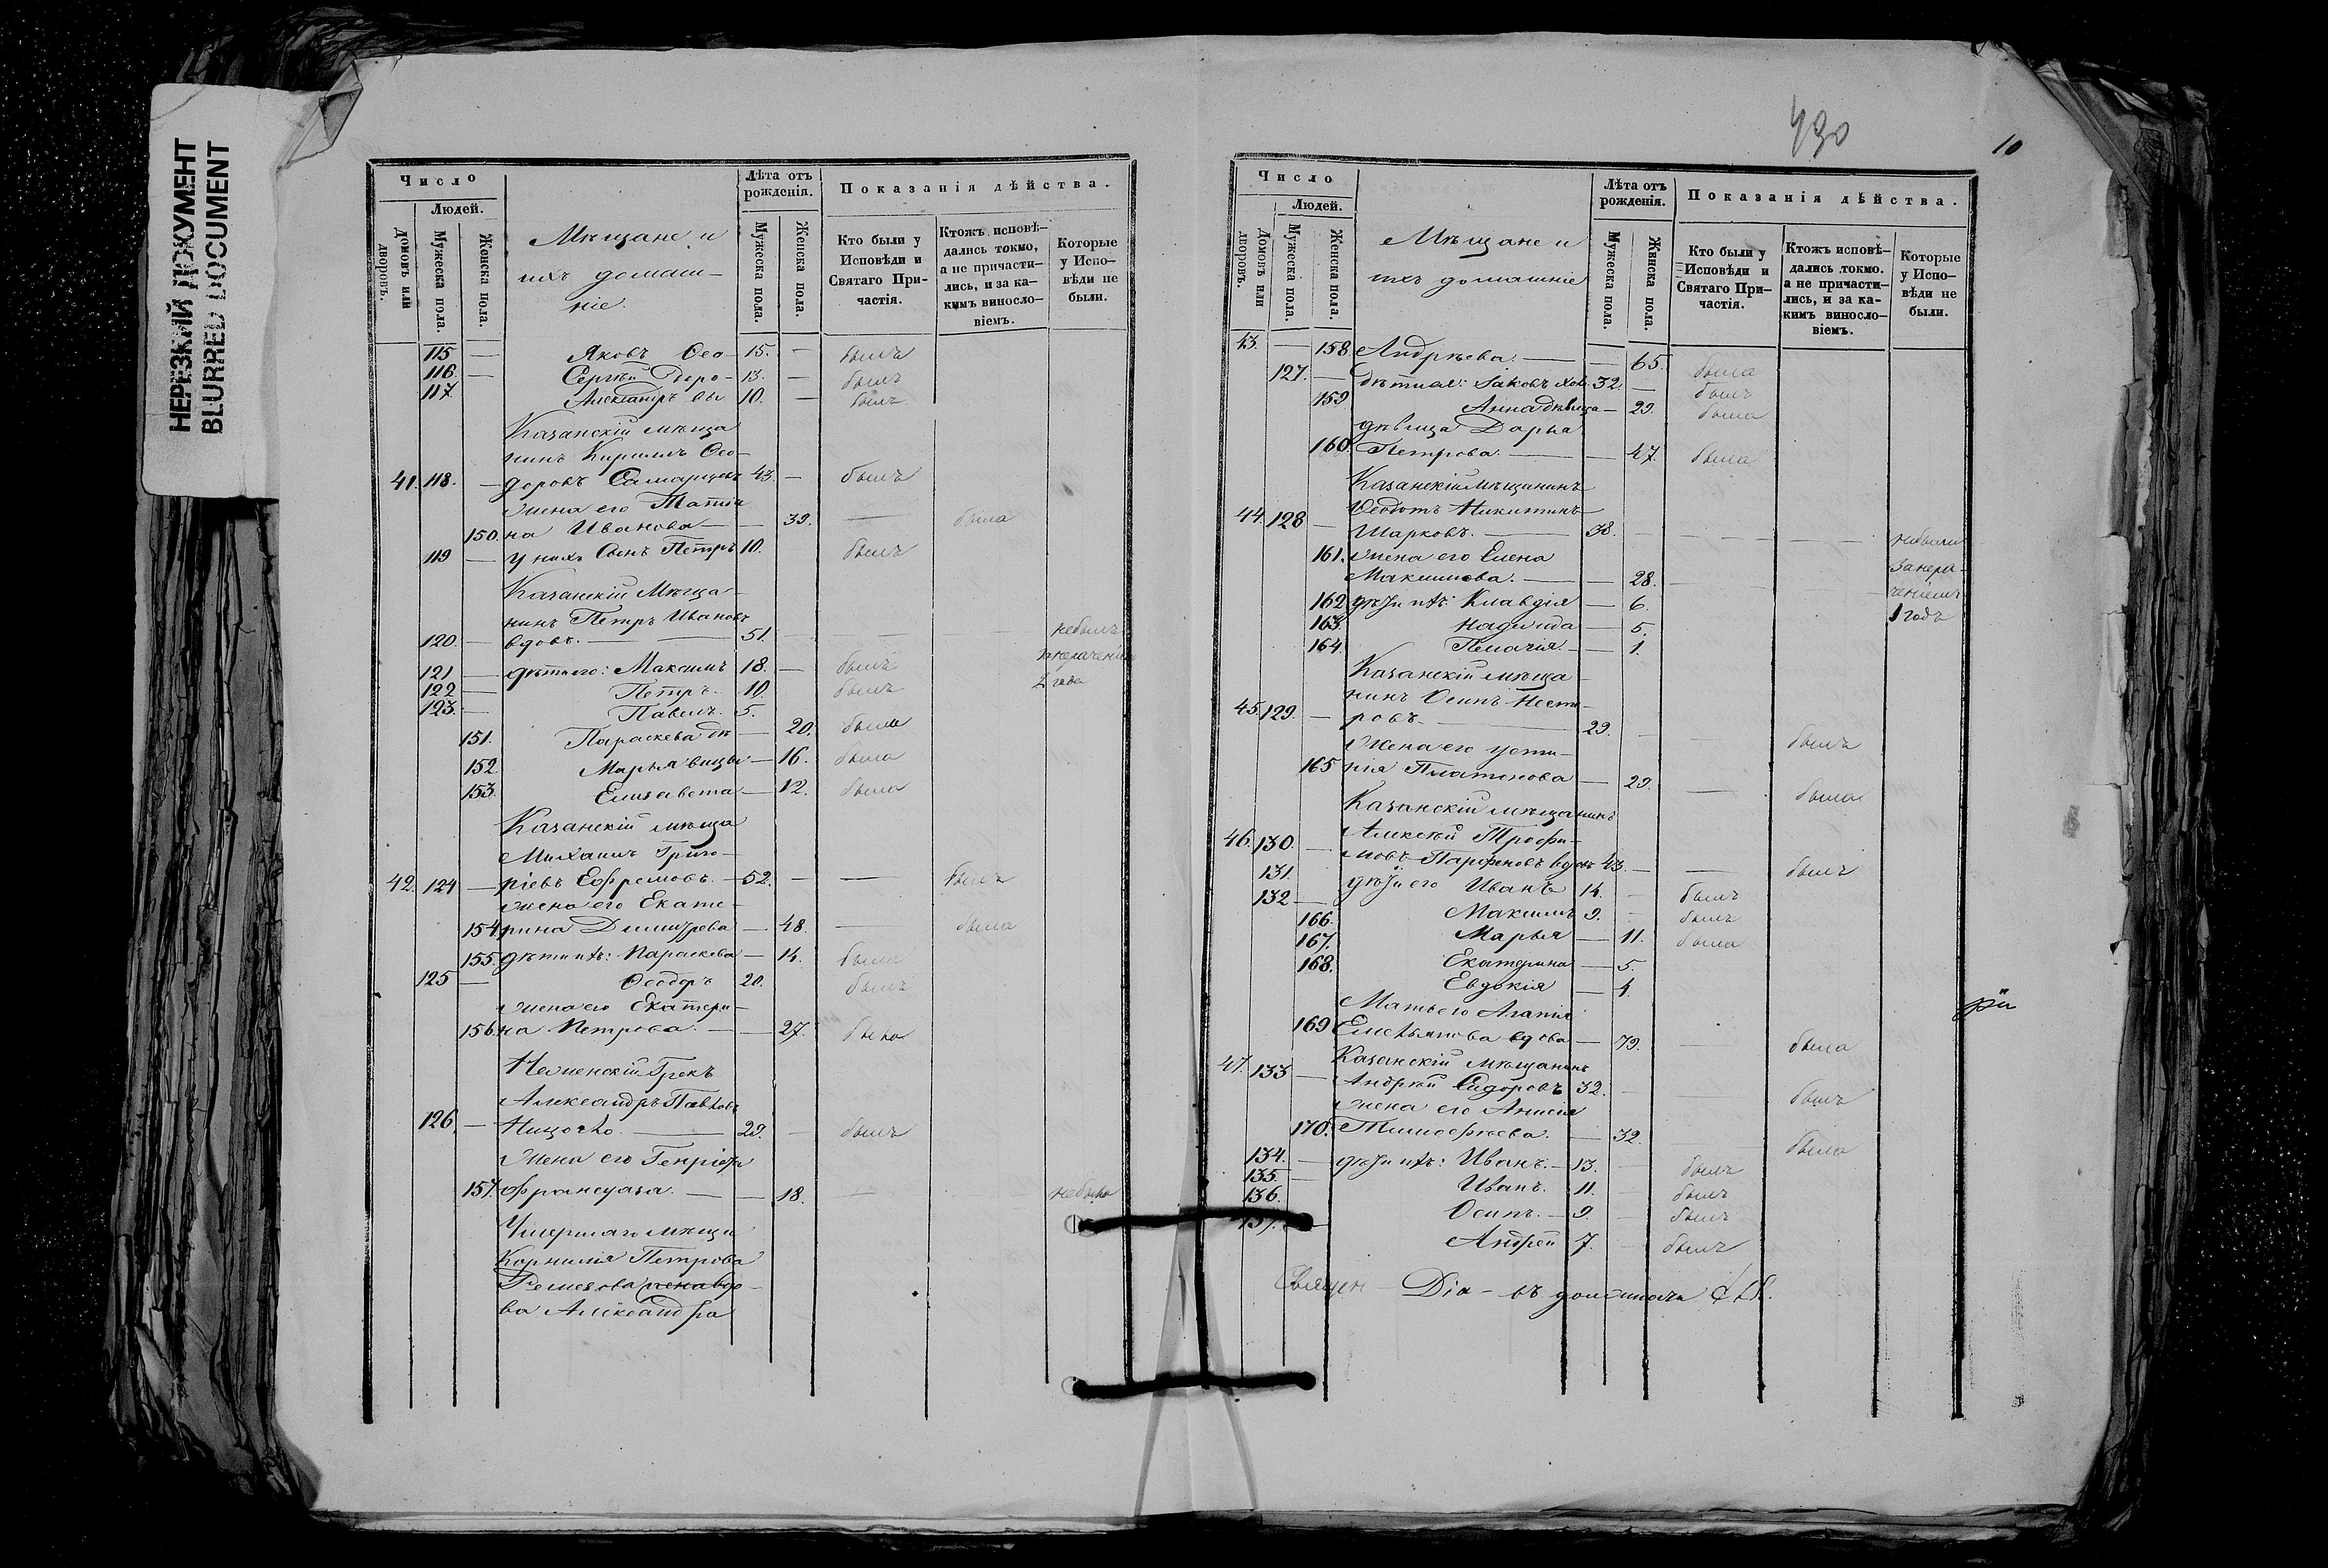 НЕРЕЗКИЙ ДОКУМЕНТ
BLURRED DOCUMENT
Число
Людей.
Домовъ или дворовъ.
Мужеска пола.
Женска пола.
Мѣщане и
ихъ домаш-
ніе
Лѣта отъ рожденія.
Мужеска пола.
Женска пола.
Показанія дѣйства.
Кто были у Исповѣди и Святаго При- частія.
Ктожъ исповѣ- дались токмо, а не причасти- лись, и за ка- кимъ виносло- віемъ.
Которые у Испо- вѣди не были.
115 — Яковъ Ѳео- 15. — былъ
116. — Сергѣй доро- 13. — былъ
117 Александръ вы 10. — былъ
Казанскій мѣща
нинъ Кирилъ Ѳео-
41. 118. — доровъ 43. — былъ
Жена его Татіа
150. на Иванова — 39. — была
119 — у нихъ Сынъ Петръ 10. былъ
Казанскій Мѣща-
нинъ Петръ Ивановъ
120. — вдовъ. — 51. — небылъ
121 — дѣти его: Максимъ 18. — былъ
122 — Петръ. 10. былъ 2 года
123. — Павелъ. 5.
151. Параскева дѣ — 20. была
152. Марья вицы — 16. была
153. Елизавета — 12. была
Казанскій мѣща
Михаилъ Григо-
42. 124 — ріевъ Ефремовъ. — 52. — былъ
жена его Екате-
154 рина Димитрева — 48. — была
155. дѣти ихъ: Параскева — 14. была
125 — Ѳеодоръ 20. былъ
жена его Екатери-
156. на Петрова. — 27. была
Нѣженскій Грекъ
Александръ Павловъ
126. — — 29. — былъ
Жена его Генріета
157. Француаза. — 18. — небыла
Умершаго мѣща
Корнилія Петрова
Ремезова жена вдо-
ва Александра
490
10
Число
Людей.
Домовъ или дворовъ.
Мужеска пола.
Женска пола.
Мѣщане и
ихъ домашніе
Лѣта отъ рожденія.
Мужеска пола.
Женска пола.
Показанія дѣйства.
Кто были у Исповѣди и Святаго При- частія.
Ктожъ исповѣ- дались токмо. а не причасти- лись, и за ка- кимъ виносло- віемъ.
Которые у Испо- вѣди не были.
43. — 158 Андрѣева. — 65. была
127. — дѣти ея: Іаковъ хол. 32. — былъ
159 Анна дѣвица — 29. была
дѣвица Дарья
160. Петрова. — 47. была
Казанскій мѣщанинъ
Ѳеодотъ Никитинъ
44. 128 — Шарковъ. — 38. — небыли
161. жена его Елена занера-
Максимова. — 28. — ченіемъ
162 дѣти ихъ: Клавдія — 6. 1 годъ
163. Надежда — 5.
164. Пелагія — 1.
Казанскій мѣща-
нинъ Осипъ Несте-
45. 129. — ровъ. — 29. — былъ
Жена его Усти-
165 нія Платонова — 29. — была
Казанскій мѣщанинъ
46. 130. — Алексѣй Трофи-
мовъ Парфеновъ вдовъ 43. — былъ
131. дѣти его Иванъ 14. — былъ
132 — Максимъ 9. — былъ
166. Марья — 11. была
167. Екатерина — 5.
168. Евдокія — 4.
Мать его Агапія
169 Емельянова вдова — 79. — была
47. 133 — Казанскій мѣщанинъ
Андрей Сидоровъ 32. — былъ
жена его Анисія
170. Тимофѣева. — 32. — была
134. — дѣти ихъ: Иванъ. — 13. — былъ
135. — Иванъ. 11. — былъ
136. Осипъ. — 9. — былъ
137. — Андрей 7. — былъ
Священ — Діа —
рій